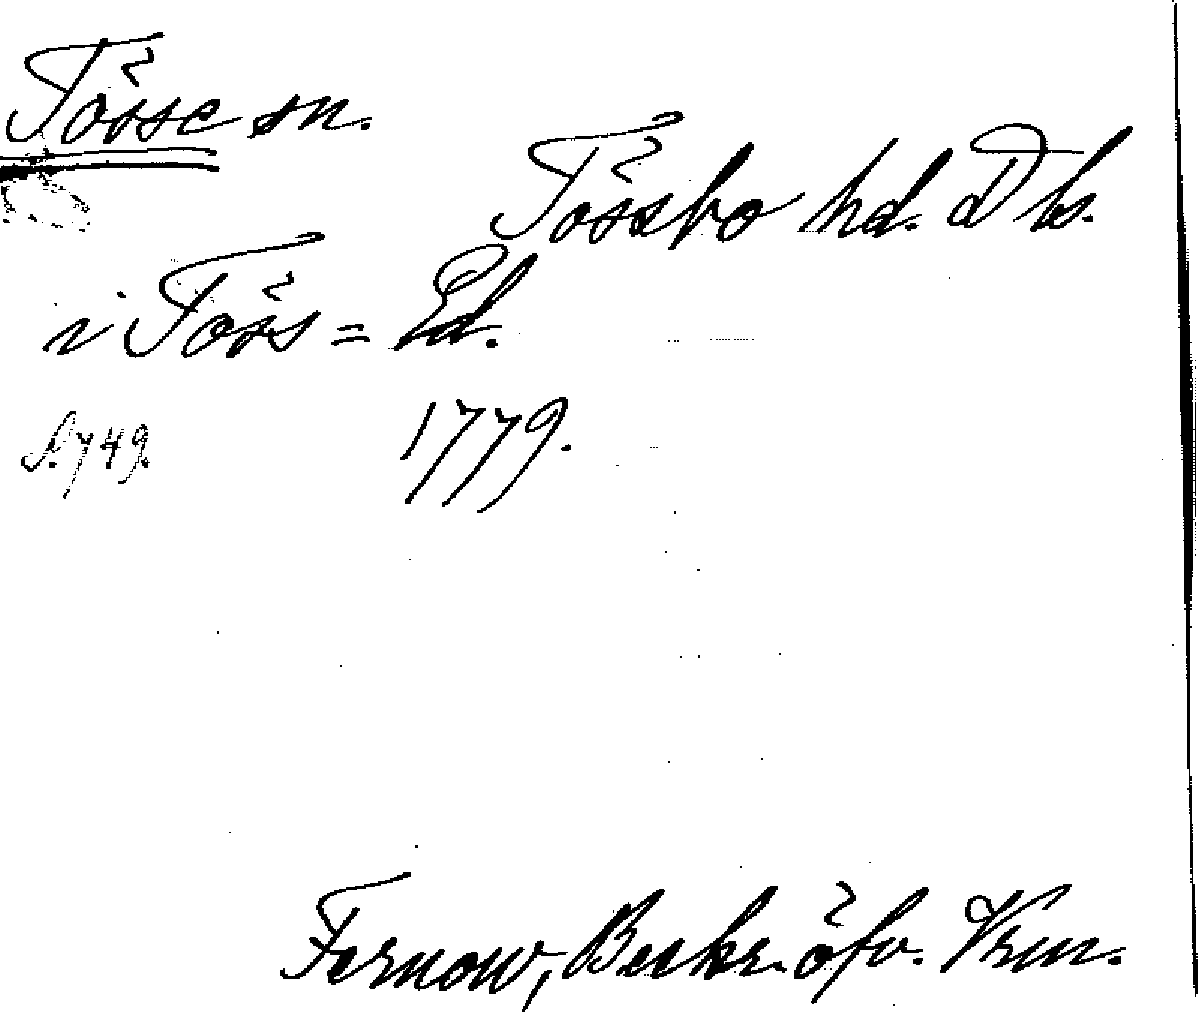 Tösse sn.
Tössbo hd. Dls.
i Töss = Ed.
S. 749. 1779.
Fernow, Beskr. öfv. Vrm.